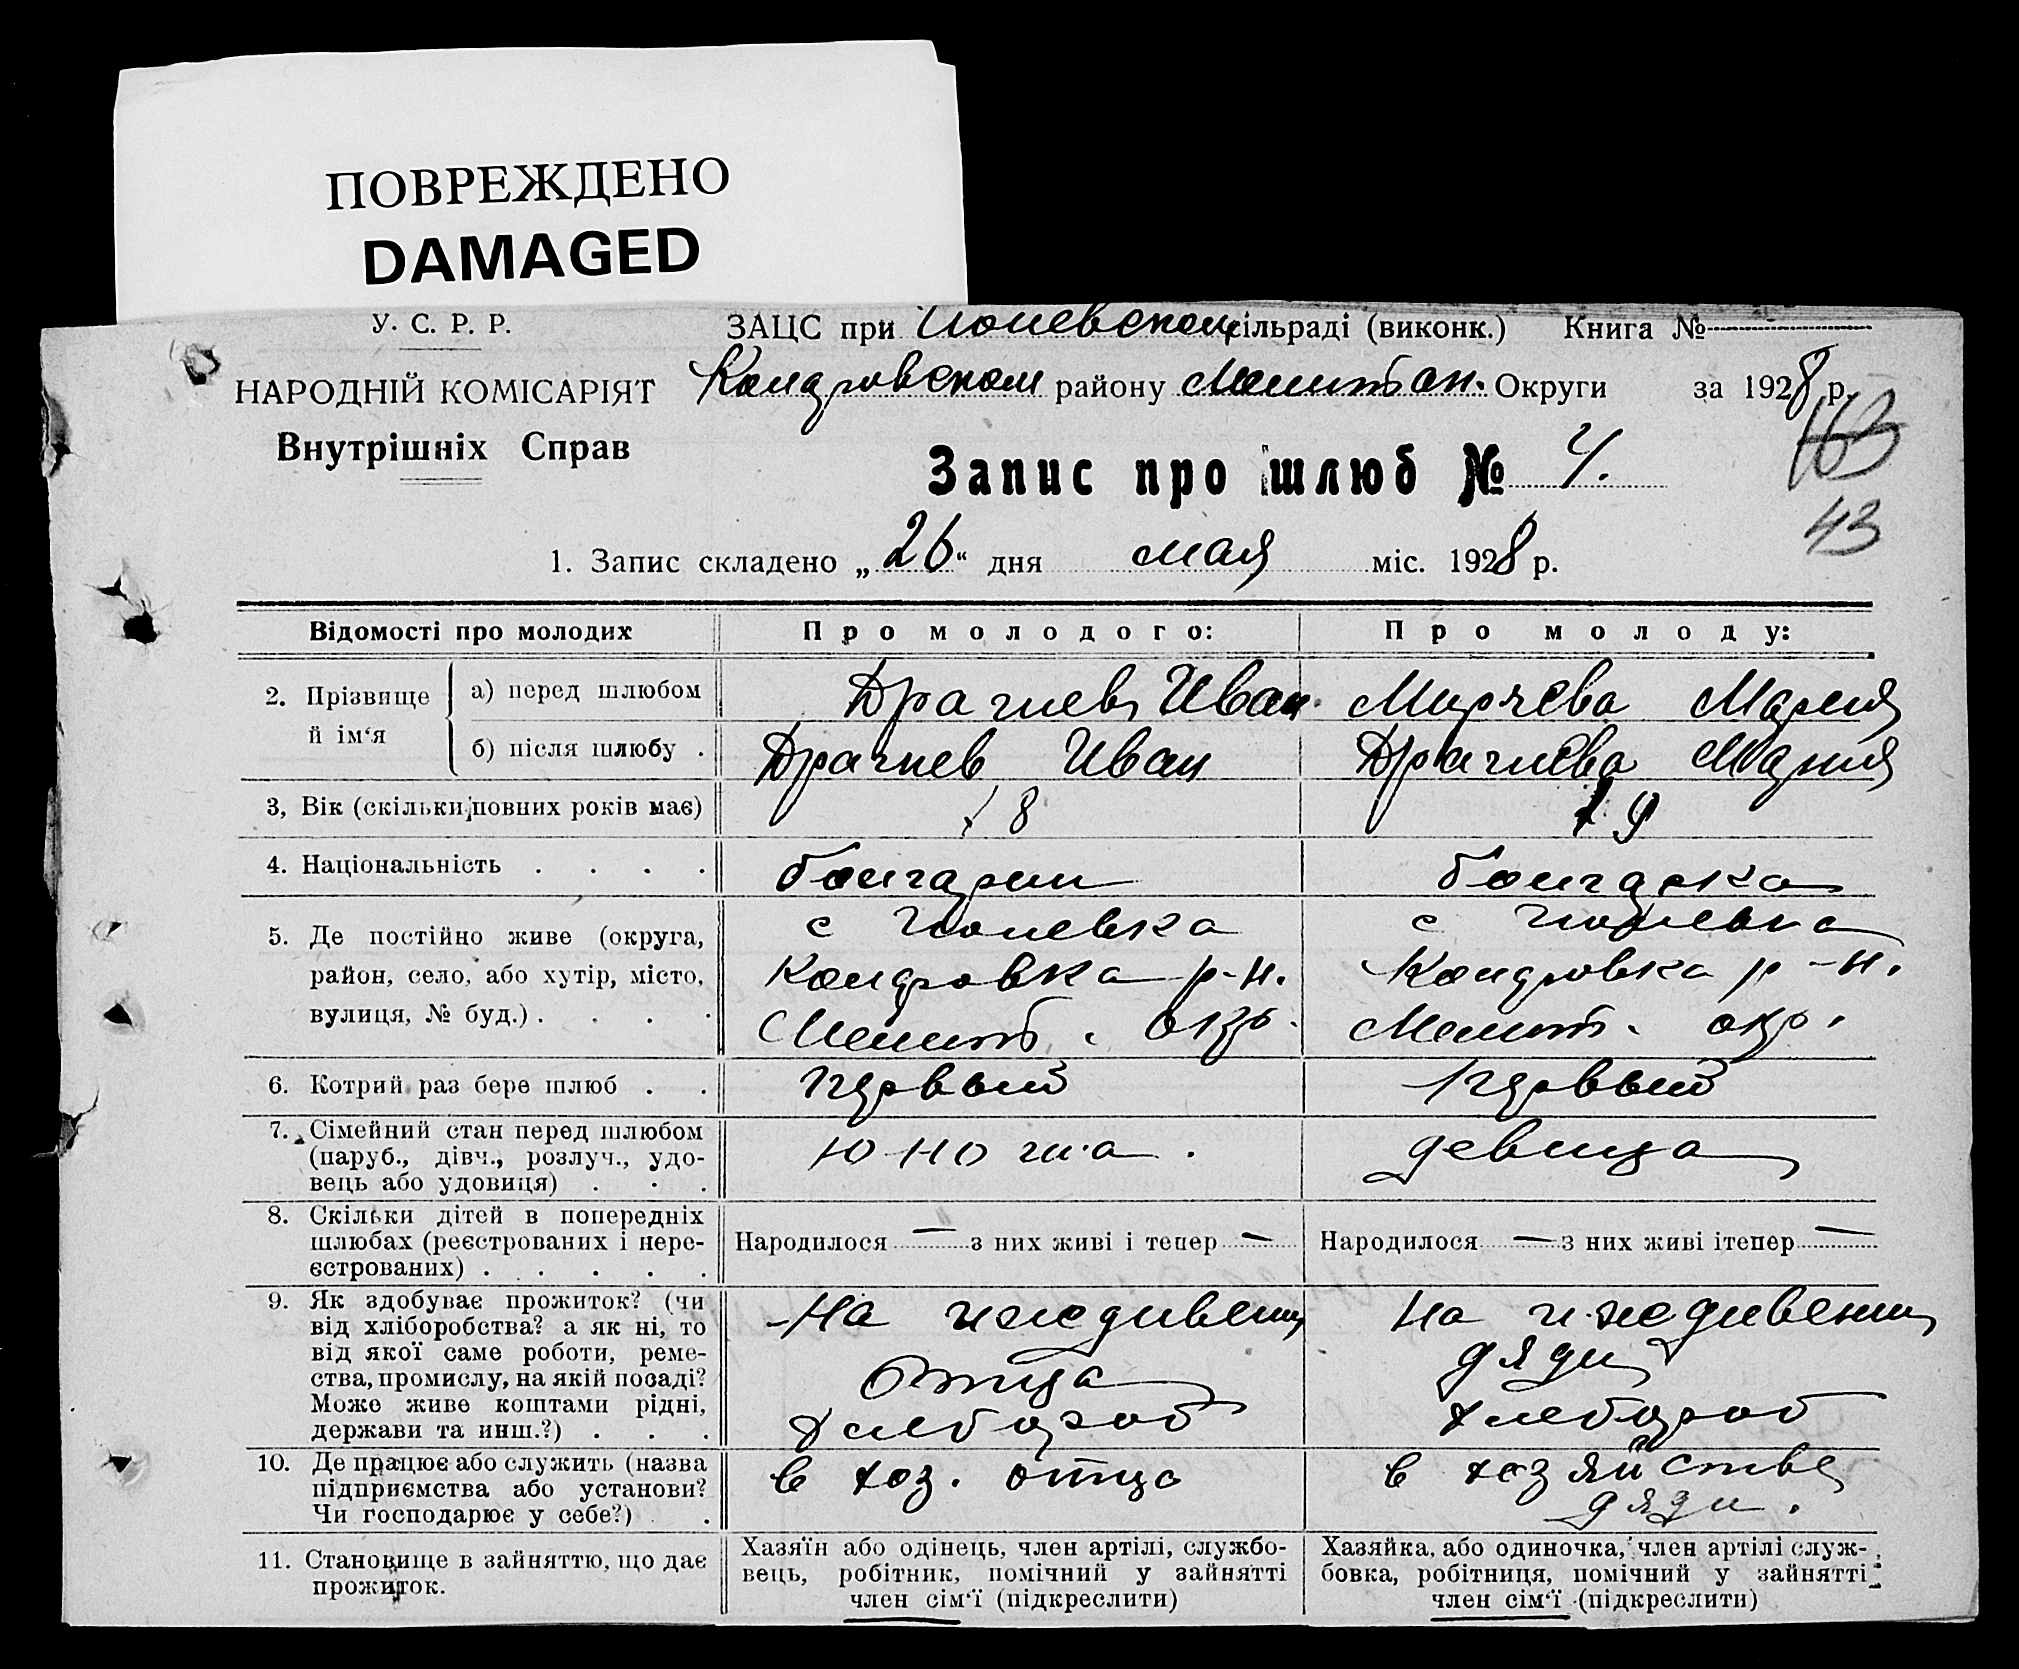 ПОВРЕЖДЕНО
DAMAGED
У. С. Р. Р.
ЗАЦС при Гюневском сільраді (виконк.) Книга №
НАРОДНІЙ КОМІСАРІЯТ
районy Округи за 1928 р.
Внутрішніх Справ
163
Запис про шлюб № 4.
43
1. Запис складено „26“ дня мая міс. 1928 р.
Відомості про молодих Про молодого: Про молоду:
2. Прізвище й ім‘я
а) перед шлюбом Драгнев Иван Мирчева Мария
б) після шлюбу . Драгнев Иван Драгнева Мария
3, Вік (скільки повних років має) 18 19
4. Національність . . . . болгарин болгарка
5. Де постійно живе (округа, с Гюневка с Гюневка
район, село, або хутір, місто, р-н. р-н.
вулиця, № буд.) . . . . Мелит. окр. Мелит. окр.
6. Котрий раз бере шлюб . . первый первый
7. Сімейний стан перед шлюбом
(паруб., дівч., розлуч., удо- юноша. девица
вець або удовиця) . . .
8. Скільки дітей в попередніх
шлюбах (реєстрованих і нере- Народилося — з них живі і тепер — Народилося — з них живі ітепер —
єстрованих) . . . . .
9. Як здобуває прожиток? (чи На иждивении На иждивении
від хліборобства? а як ні, то
від якої саме роботи, реме- отца дяди
ства, промислу, на якій посаді?
Може живе коштами рідні, хлебороб хлебороб
держави та инш.?) . . .
10. Де працює або служить (назва в хоз. отца в хозяйстве
підприємства або установи?
Чи господарює у себе?) . . дяди.
11. Становище в зайняттю, що дає прожиток.
Хазяїн або одінець, член артілі, службо- Хазяйка, або одиночка, член артілі служ-
вець, робітник, помічний у зайнятті бовка, робітниця, помічний у зайнятті
член сім‘ї (підкреслити) член сім‘ї (підкреслити)